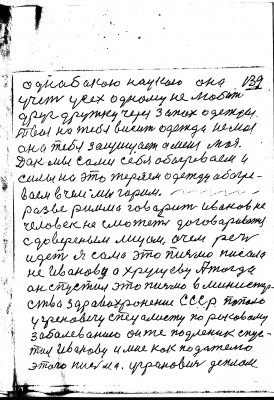 однабакою наукою она 139
учет усех одному не любит
друг дружку через запах одежды.
твоя на тебя висит одежда не моя
она тебя защищает а меня моя.
Дак мы сами себя обагреваем и
силы на это теряем одежду обагре-
ваем в чем мы горим.
разве римма говарит ивановне
человек не сможет договариватся
с довереным лицом, очем реч
идет я сама это писмо писала
не Иванову а хрущеву А тогда
он спустил это писмо в министер-
ства здравохронения СССР потано
учреновичу специалисту по раковому
заболеванию он те подленик спус-
тил Иванову и мне как подателю
этого писма. угранович диплом